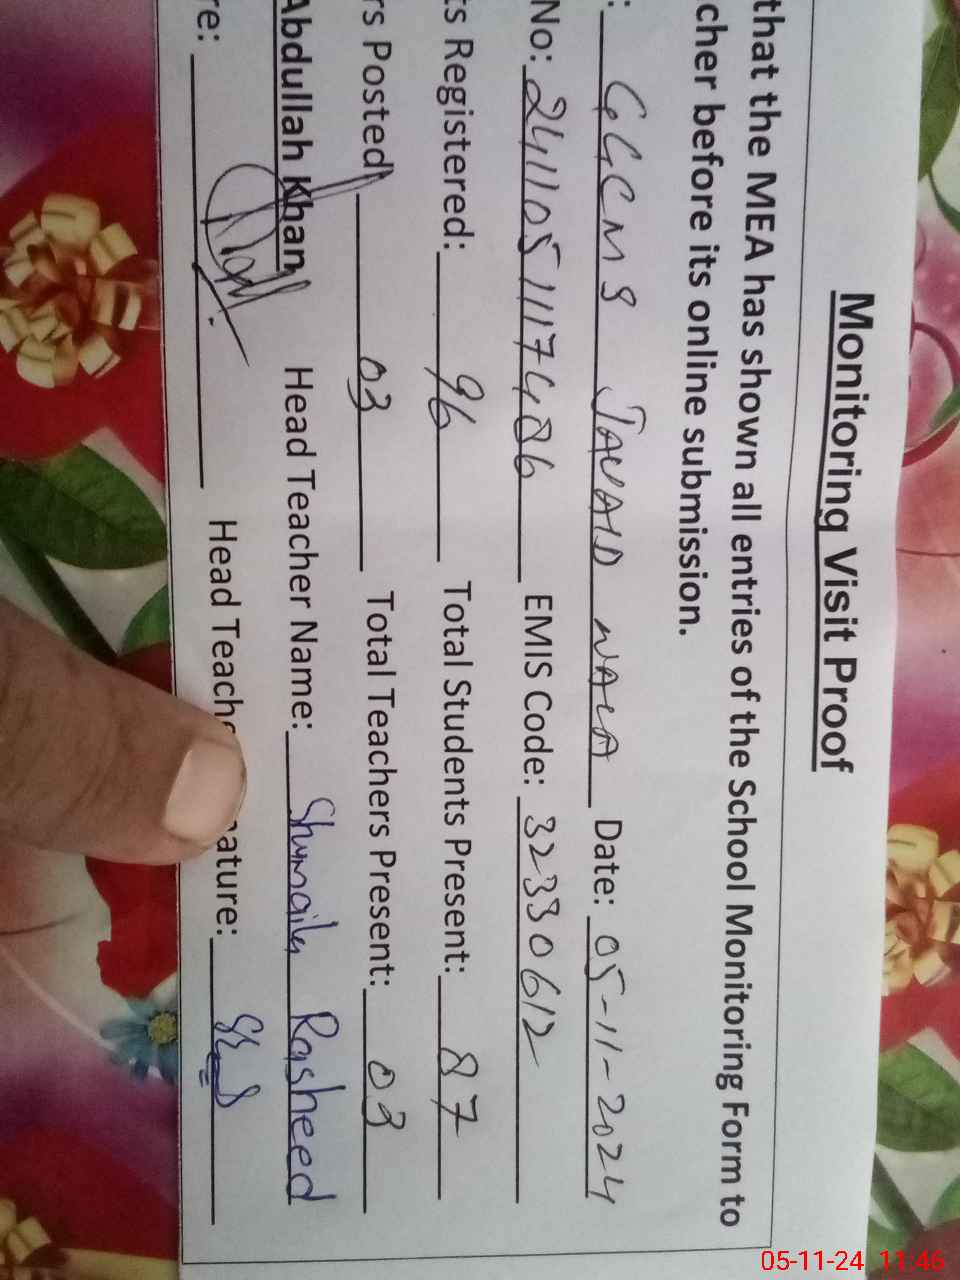 Monitoring Visit Proof
that the MEA has shown all entries of the School Monitoring Form to
cher before its online submission.
: GGCMS JAVAID WALA Date: 05-11-2024
No: 2411051117486 EMIS Code: 32330612
ts Registered: 96 Total Students Present: 87
rs Posted 03 Total Teachers Present: 03
Abdullah Khan Head Teacher Name: Shumaila Rasheed
re: Head Teache ature:
05-11-24 11:46